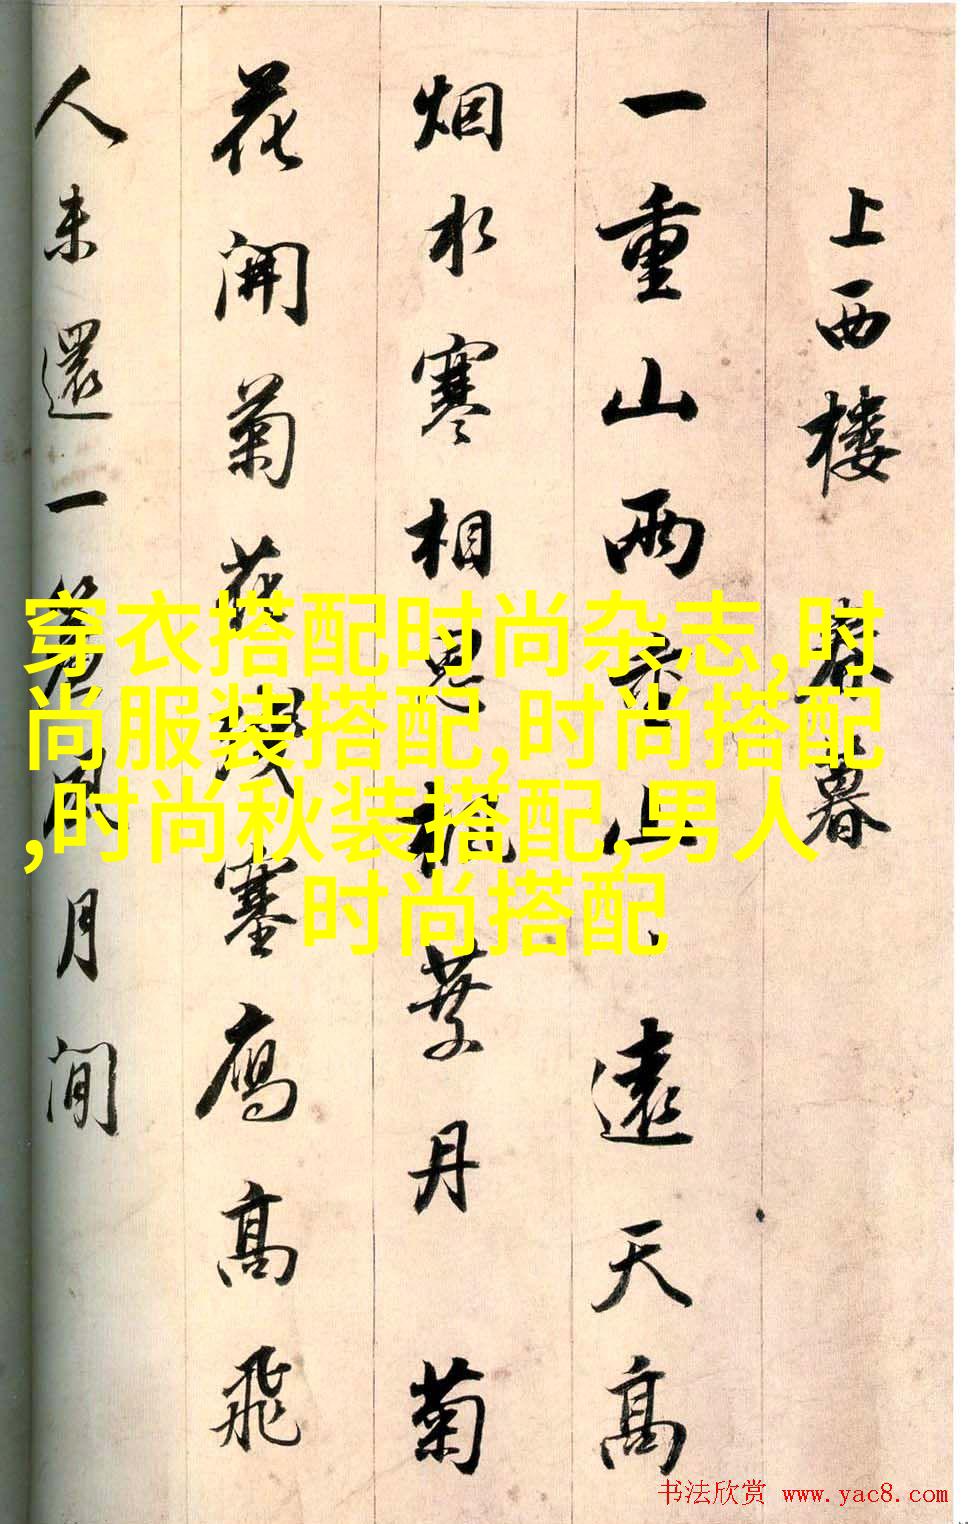 上西楼 春暮
一重山兩重山、遠天高
烟水寒相思楓葉丹菊
花開菊花殘塞鴈高飛
人未還一簾風月閒
穿衣搭配时尚杂志,时
尚服装搭配,时尚搭配
,时尚秋装搭配,男人
时尚搭配
书法欣赏 www.yac8.com